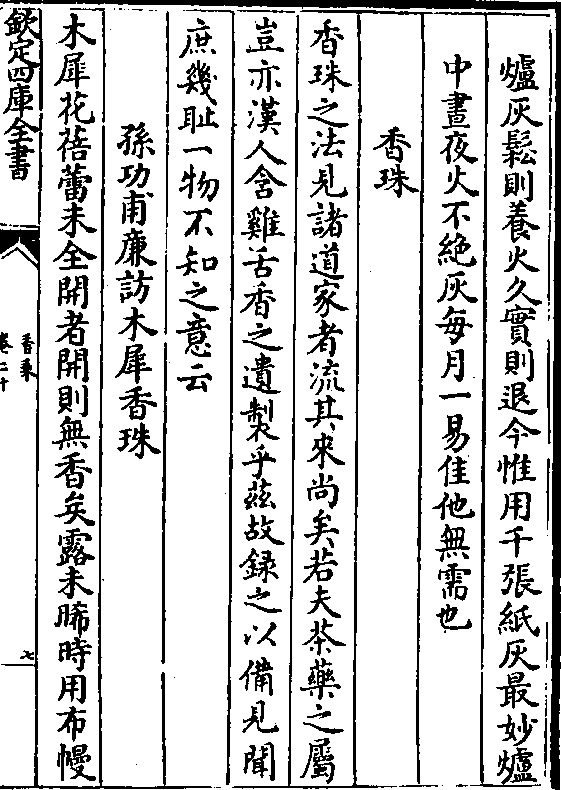 爐灰鬆則養火久實則退今惟用千張紙灰最妙爐
中晝夜火不絶灰每月一易佳他無需也
香珠
香珠之法見諸道家者流其來尚矣若夫茶藥之屬
豈亦漢人含雞舌香之遺製乎茲故録之以備見聞
庶幾耻一物不知之意云
孫功甫廉訪木犀香珠
木犀花蓓蕾未全開者開則無香矣露未晞時用布幔
欽定四庫全書
香乘
卷二十
七